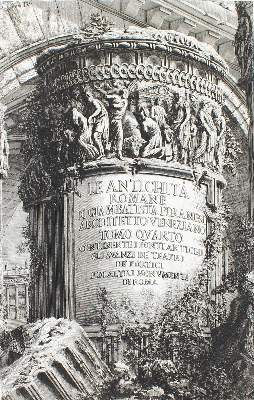 LE ANTICHITÀ
ROMANE
DI GIAMBATISTA PIRANESI
ARCHITETTO VENEZIANO
TOMO QUARTO
CONTENENTE I PONTI ANTICHI
GLI AVANZI DE' TEATRI
DE' PORTICI
ED ALTRI MONUMENTI
DI ROMA.